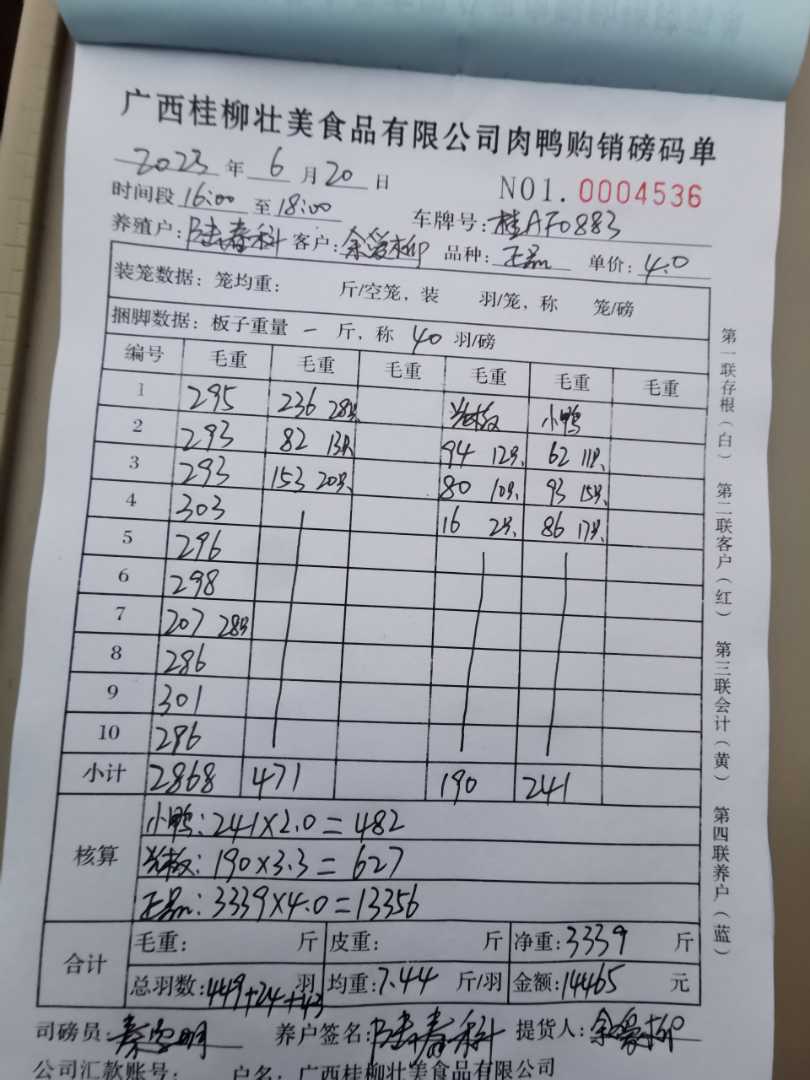 广西桂柳壮美食品有限公司肉鸭购销磅码单
2023 年 6 月 20 日 NO1. 0004536
时间段 16:00 至 18:00 车牌号: 桂AF0883
养殖户: 陆春科 客户: 品种: 正品 单价: 4.0
装笼数据: 笼均重: 斤/空笼, 装 羽/笼, 称 笼/磅
捆脚数据: 板子重量 一 斤, 称 40 羽/磅
编号 毛重 毛重 毛重 毛重 毛重 毛重
1 295 236 28只 光板 小鸭
2 293 82 13只 94 12只 62 11只
3 293 153 20只 80 10只 93 15只
4 303 16 2只 86 17只
5 296
6 298
7 207 28只
8 286
9 301
10 296
小计 2868 471 190 241
核算 小鸭: 241×2.0=482
光板: 190×3.3=627
正品: 3339×4.0=13356
合计 毛重: 斤 皮重: 斤 净重: 3339 斤
总羽数: 449+24+43 羽 均重: 7.44 斤/羽 金额: 14465 元
司磅员: 养户签名: 陆春科 提货人:
公司汇款账号: 户名: 广西桂柳壮美食品有限公司
第一联存根(白) 第二联客户(红) 第三联会计(黄) 第四联养户(蓝)